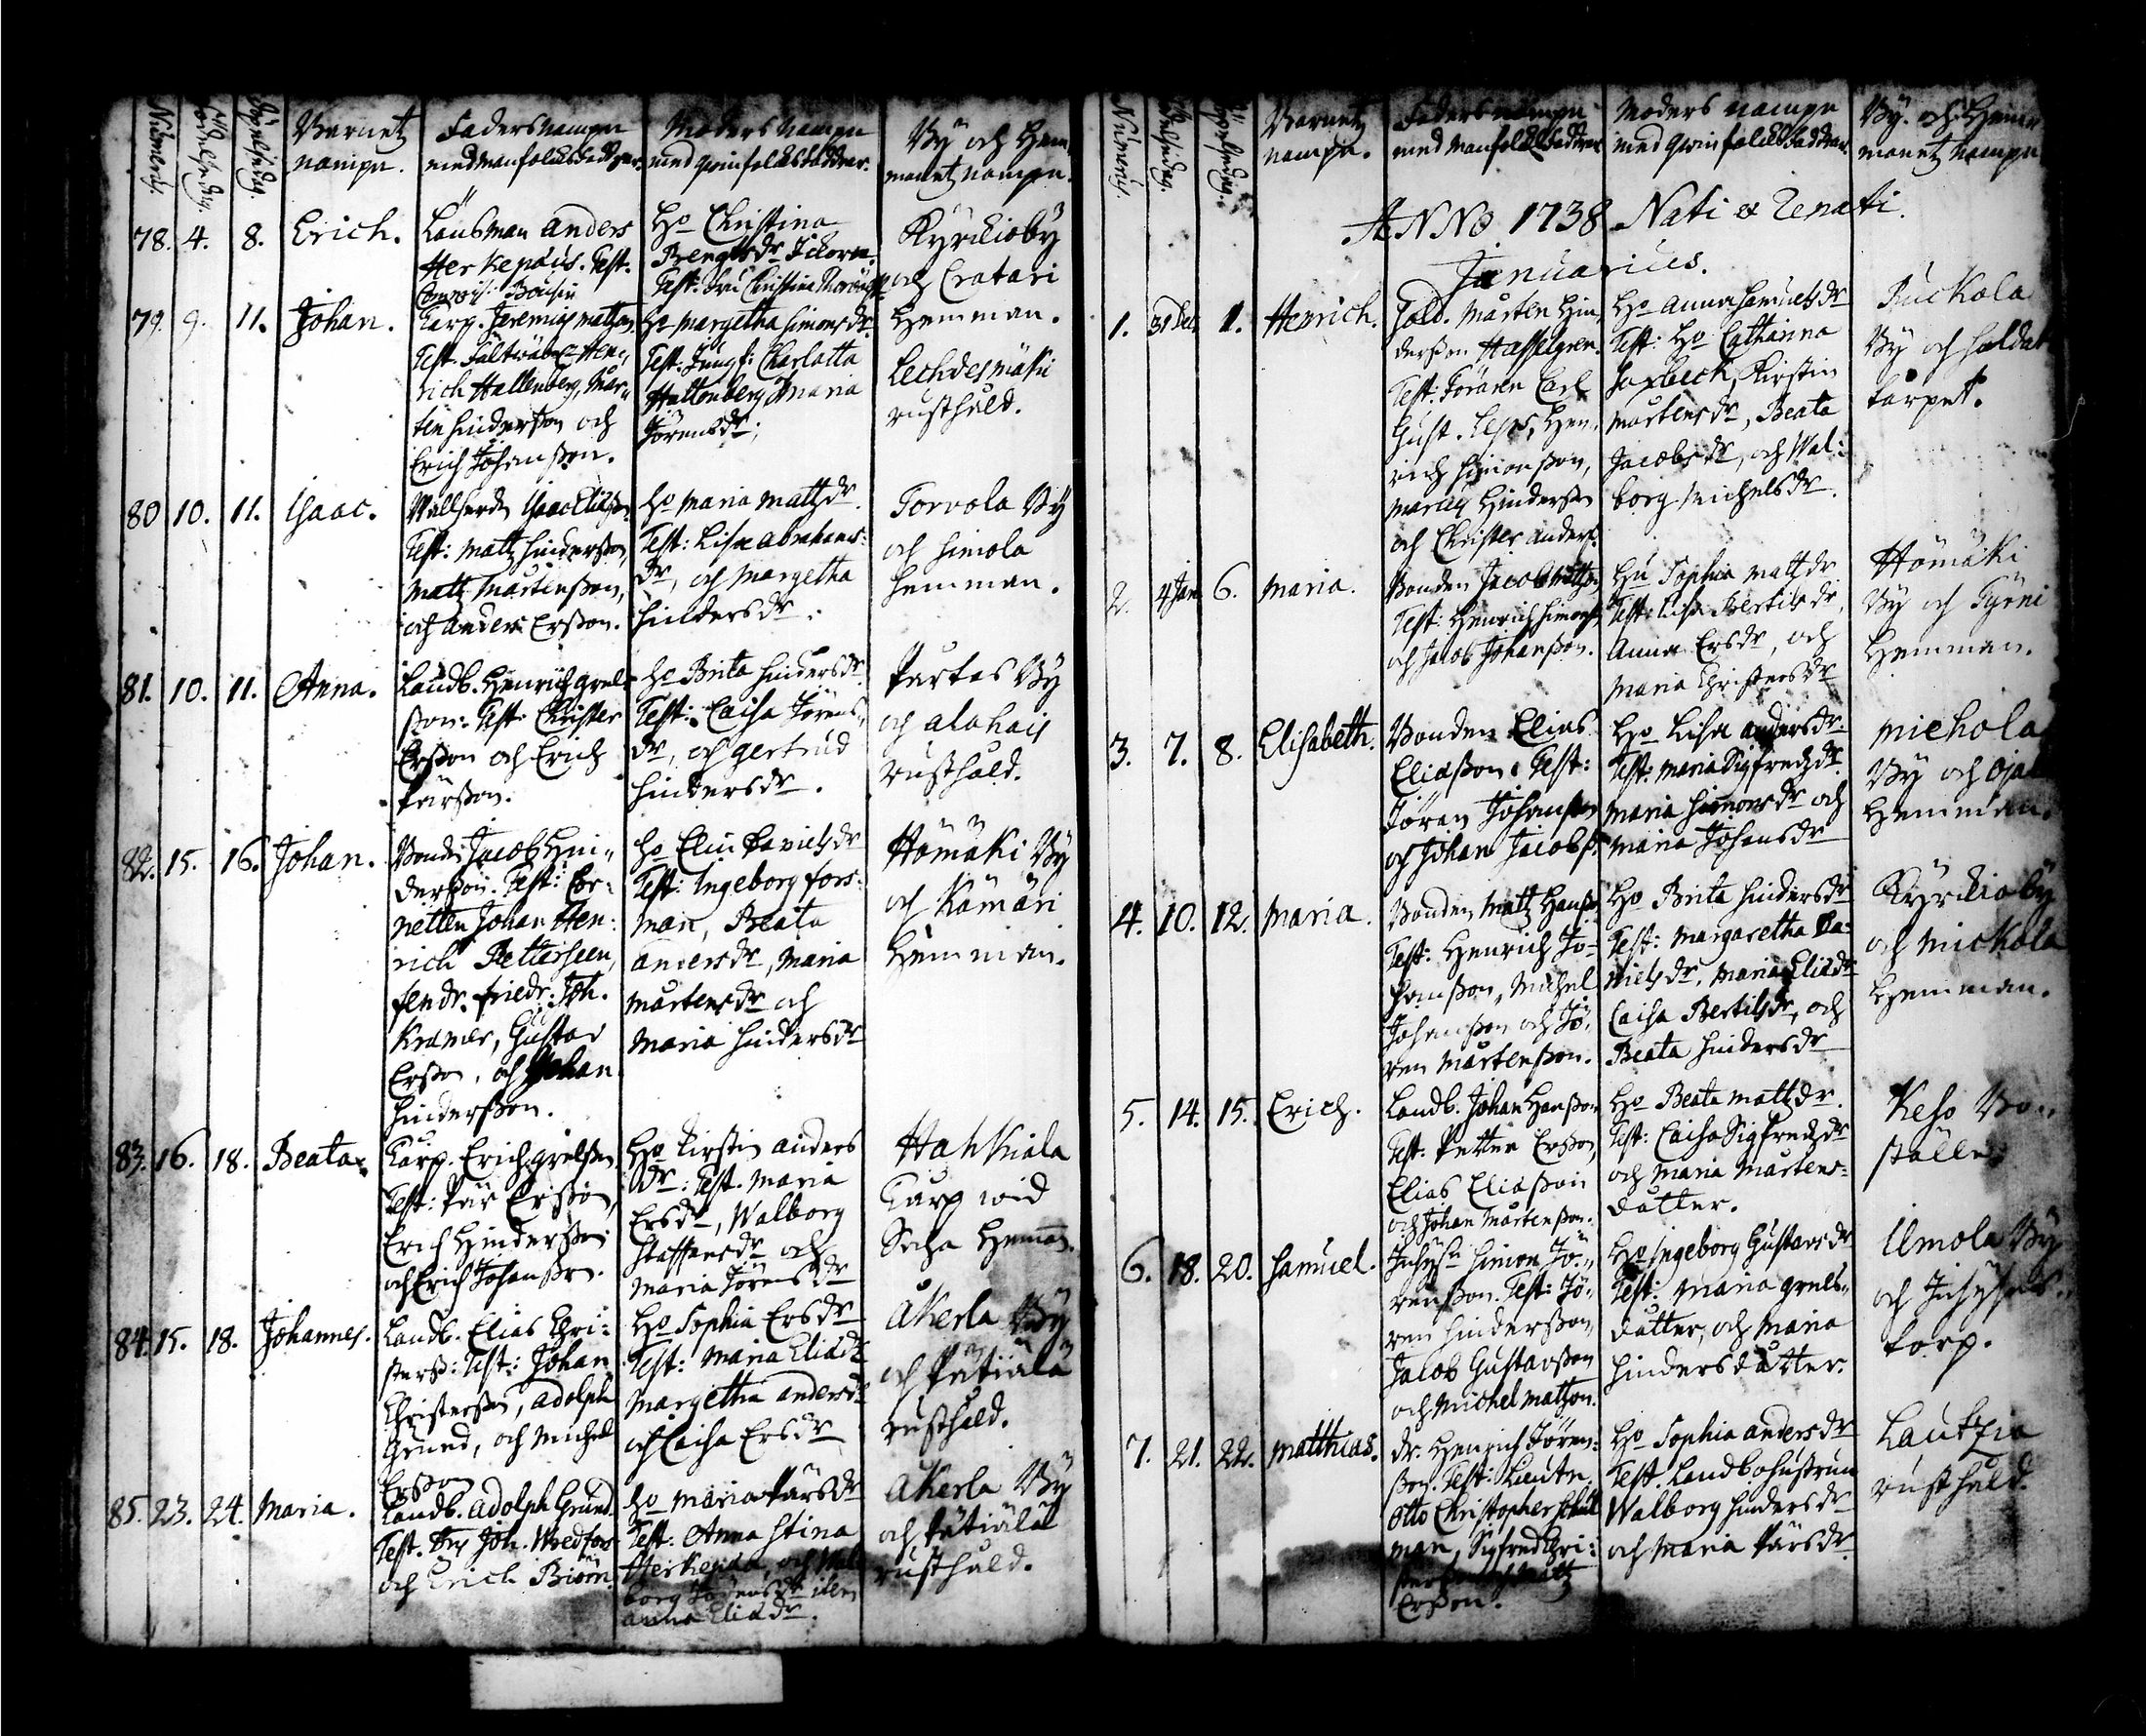 Numerus.
Födelsedag.
Döpelsedag.
Barnetz
nampn.
Fadersnampn
med manfolcksfaddrar.
Moders nampn
med qwinfolcksfaddrar.
By och Hem-
manetz nampn.
78. 4. 8. Erich.
Länsman Anders
Herkepæus. Test.
Ho Christina
Bengtsdr
Test: Fru Christina
Kyrckioby
och Eratari
Hemman.
79. 9. 11. Johan.
Corp. Jeremias Matzon
Test. Fältwäbel Hen-
rich Hallenberg, Mår-
ten Hindersson och
Erich Johansson.
Ho Margetha Simonsdr
Test: Jungf: Charlotta
Hallenberg Maria
Jörensdr;
Lechdesmäki
rusthåld.
80 10. 11. Isaac.
Wallherden Isaac Eliæson
Test: Matz Hindersson,
Matz Mårtensson,
och Anders Ersson.
Ho Maria Matzdr.
Test: Lisa Abrahams-
dr, och Margetha
Hindersdr.
Torvola By
och Simola
Hemman.
81. 10. 11. Anna.
Landb. Henrich Grels-
son: Test: Christer
Ersson och Erich
Pärsson.
Ho Brita Hindersdr
Test: Caisa Jörens-
dr, och Gertrud
Hindersdr.
Partas By
och Alahais
rusthåld.
82. 15. 16. Johan.
Bonden Jacob Hin-
dersson. Test: Cor-
netten Johan Hen-
rich Petterseen,
Fendr. Friedr: Joh.
Kramer, Gustav
Ersson, och Johan
Hindersson.
Ho Elin Danielsdr
Test: Ingeborg Fors-
man, Beata
Andersdr, Maria
Mårtensdr och
Maria Hindersdr
Hömäki By
och Kämäri
Hemman.
83. 16. 18. Beata.
Corp. Erich Grelsson
Test: Pär Ersson,
Erich Hindersson
och Erich Johansson.
Ho Kirstin Anders
dr: Test. Maria
Ersdr, Walborg
Staffansdr och
Maria Jörensdr
Hahkiala
Torp wid
Hemman.
84. 15. 18. Johannes.
Landb. Elias Chri-
sterss: Test: Johan
Christersson, Adolph
Grund, och Michel
Ersson
Ho Sophia Ersdr
Test: Maria Eliædr
Margetha Andersdr
och Caisa Ersdr
Akerla By
och Pätiälä
rusthåld.
85. 23. 24. Maria.
Landb. Adolph Grund.
Test. Joh. Wredfors
och Erich Biörn.
Ho Maria Pärsdr
Test: Anna Stina
Herkepæa, och Wal-
borg Jörensdr item
Anna Eliædr.
Akerla By
och Pätiälä
rusthåld.
Numerus.
Födelsedag.
Döpelsedag.
Barnetz
nampn.
Fadersnampn
med manfolcksfaddrar
Moders nampn
med qwinfolcksfaddrar.
By och Hem-
manetz nampn
ANNO 1738 Nati et Renati.
Januarius.
1. 31 Dec. 1. Henrich.
Sold. Mårten Hin-
dersson Hasselgren.
Test: Föraren Carl
Gust. Leps, Hen-
rich Simonsson,
Hindersson
och Christer Anderss.
Ho Anna Samuelsdr
Test: Ho Catharina
Kirstin
Mårtensdr, Beata
Jacobsdr, och Wal-
borg Michelsdr.
Ruckola
By och soldat
torpet.
2. 4 Jan 6. Maria.
Bonden Jacob Matzon,
Test: Henrich Simonss
och Jacob Johansson.
Hu Sophia Matzdr
Test: Lisa Bertilsdr,
Anna Ersdr, och
Maria Christersdr
Hömäki
By och Pyrni
Hemman.
3. 7. 8. Elisabeth.
Bonden Elias
Eliæsson. Test:
Jören Johansson
och Johan Jacobss.
Ho Lisa Andersdr.
Test: Maria Sigfredzdr
Maria Simonsdr och
Maria Johansdr
Miehola
By och Oja
Hemman.
4. 10. 12. Maria.
Bonden Matz Hansson
Test: Henrich Jo-
hansson, Michel
Johansson och Jö-
ren Mårtensson.
Ho Brita Hindersdr
Test: Margaretha Da-
nielsdr, Maria Eliædr
Caisa Bertilsdr, och
Beata Hindersdr
Kyrckioby
och Mickola
Hemman.
5. 14. 15. Erich.
Landb. Johan Hansson
Test: Petter Ersson,
Elias Eliæsson
och Johan Mårtensson.
Ho Beata Matzdr.
Test: Caisa Sigfredzdr
och Maria Mårtens-
dotter.
Keso Bo-
ställe.
6. 18. 20. Samuel.
Inhys: Simon Jö-
rensson. Test: Jö-
ren Hindersson,
Jacob Gustavsson
och Michel Matzon.
Ho Ingeborg Gustavsdr
Test: Maria Grels-
dotter, och Maria
Hindersdotter.
Ilmola By
och Inhyses
torp.
7. 21. 22. Matthias.
Dr. Henrich Jören-
sson. Test: Lieutn.
Otto Christopher Schult
man, Sigfred Chri-
sterss och Matz
Ersson.
Ho Sophia Andersdr
Test. Landbohustrun
Walborg Hindersdr
och Maria Pärsdr.
Lautzia
rusthåld.